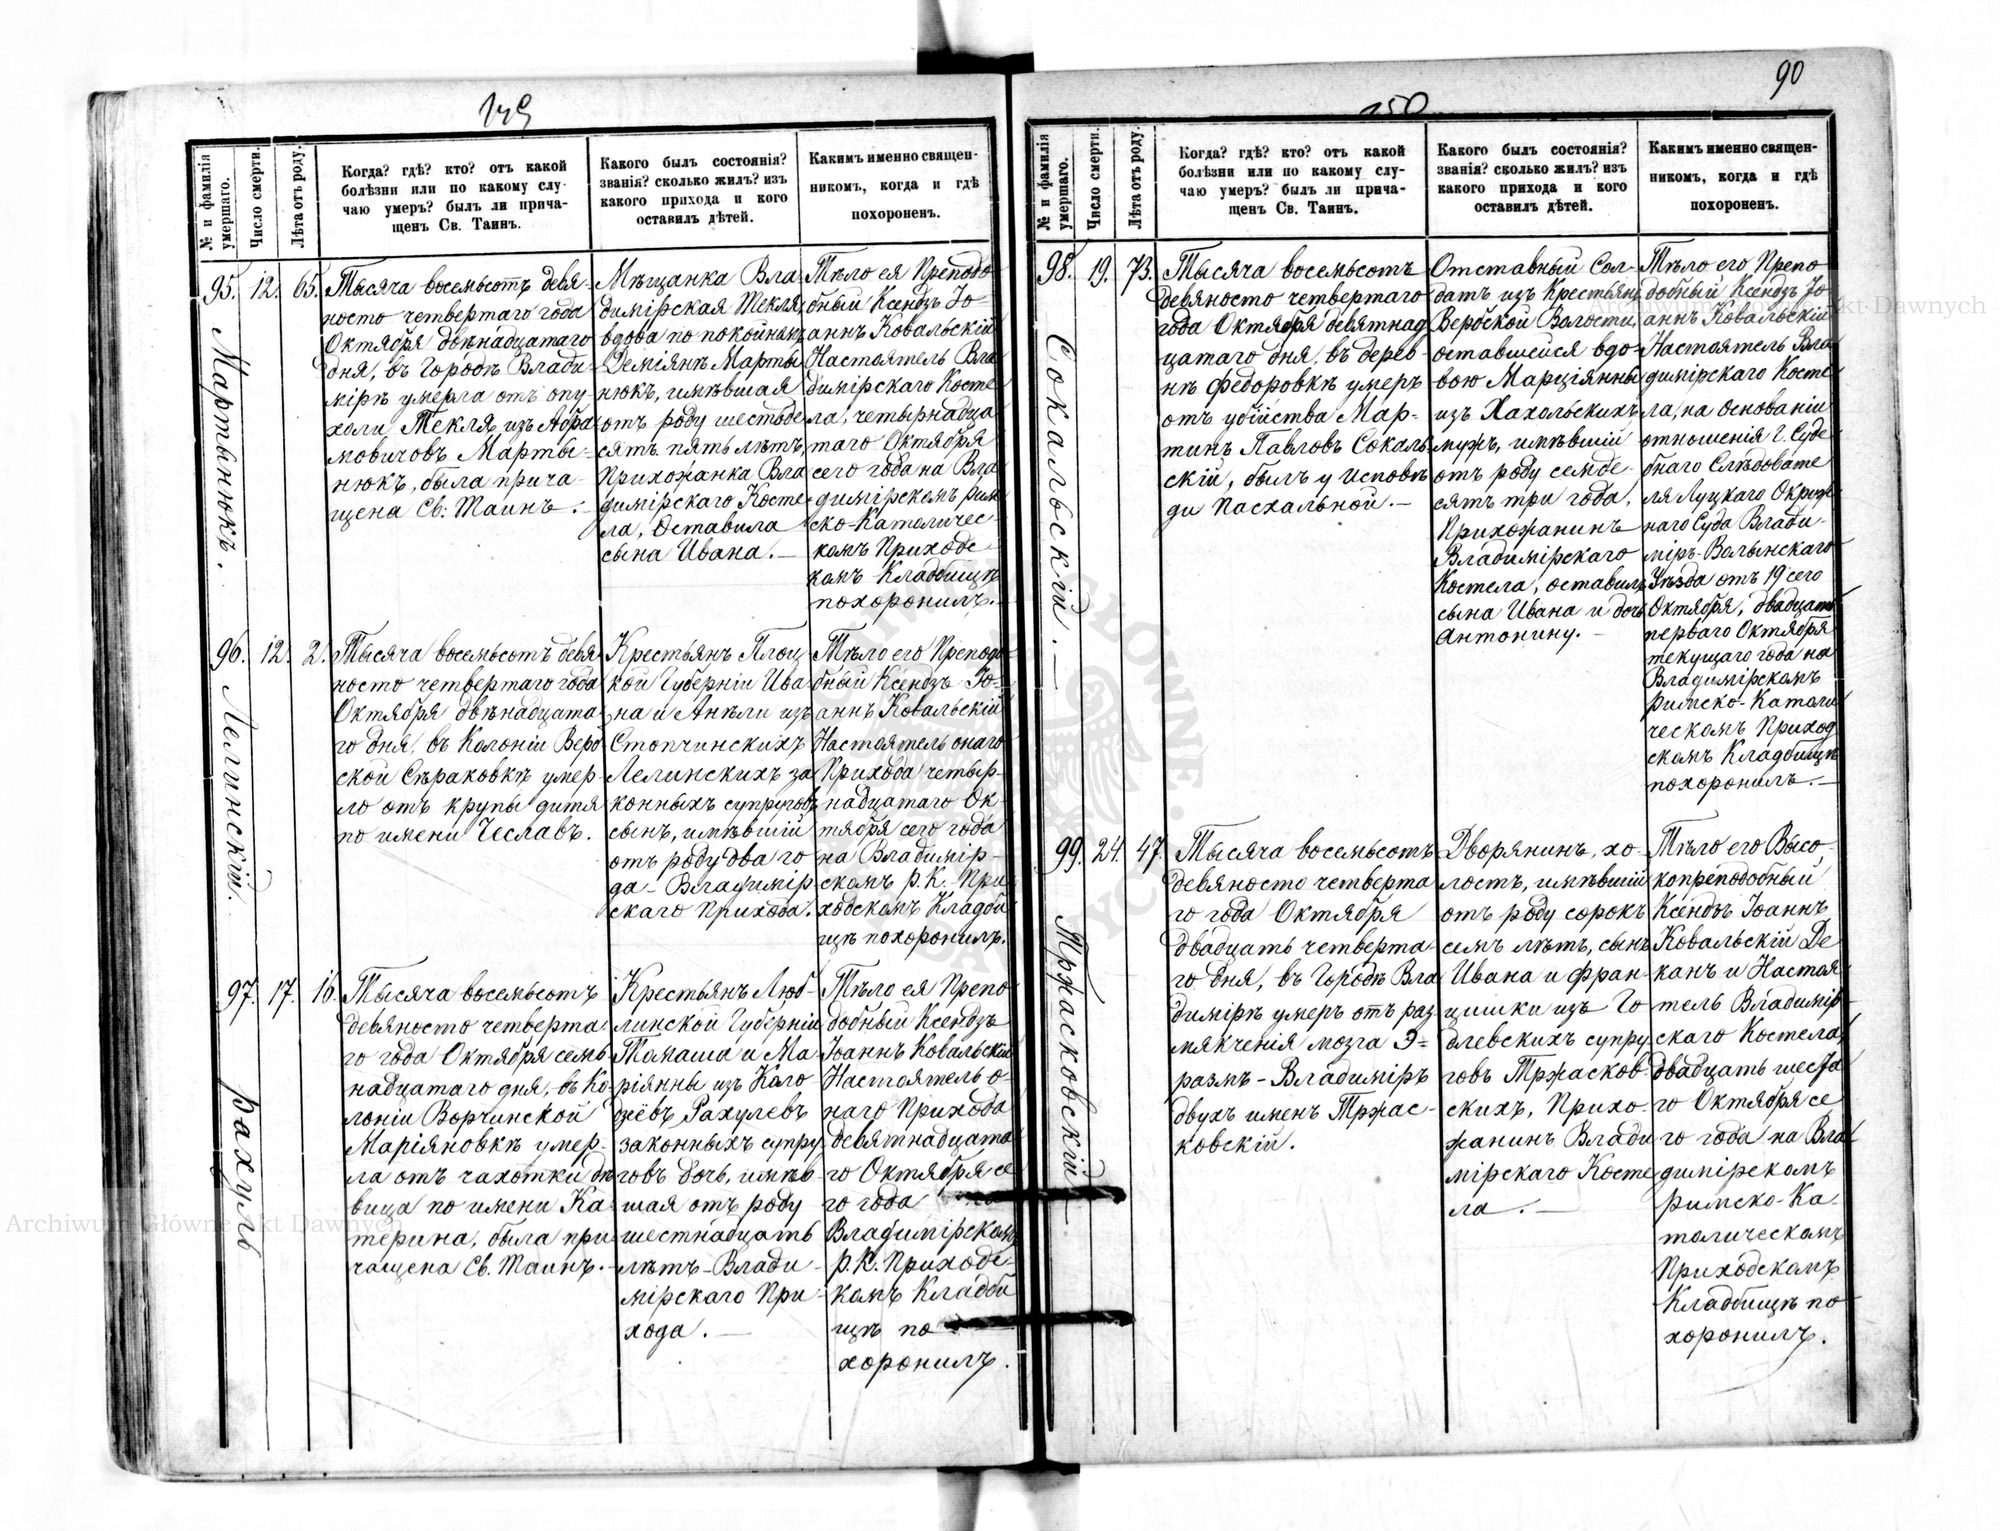 149
№ и фамилія умершаго.
Число смерти.
Лѣта отъ роду.
Когда? гдѣ? кто? отъ какой
болѣзни или по какому слу-
чаю умеръ? былъ ли прича-
щенъ Св. Таинъ.
Какого былъ состоянія?
званія? сколько жилъ? изъ
какого прихода и кого
оставилъ дѣтей.
Какимъ именно священ-
никомъ, когда и гдѣ
похороненъ.
95.
Мартынюкъ.
12.
65.
Тысяча восемьсотъ девя-
носто четвертаго года
Октября двѣнадцатаго
дня, въ Городѣ Влади-
мірѣ умерла отъ опу-
холи Текля изъ Абра
мовичовъ Марты-
нюкъ, была прича-
щена Св: Таинъ.-
Мѣщанка Вла
димірская Текля,
вдова по покойнымъ
Деміянѣ Марты
нюкъ, имѣвшая
отъ роду шестьде
сятъ пять лѣтъ,
Прихожанка Вла
димірскаго Косте
ла, Оставила
сына Ивана.-
Тѣло ея Преподо
бный Ксендзъ Іо
аннъ Ковальскій
Настоятель Вла
димірскаго Косте
ла, четырнадца
таго Октября
сего года на Вла
димірскомъ рим
ско-Католичес-
комъ Приходс
комъ Кладбищѣ
похоронилъ.-
96.
Лелинскій.
12.
2.
Тысяча восемьсотъ девя
носто четвертаго года
Октября двѣнадцата
го дня, въ Колоніи Верб
ской Сѣраковкѣ умер-
ло отъ крупы дитя
по имени Чеславъ.
Крестьянъ Плоц
кой Губерніи Ива
на и Анѣли изъ
Стопчинскихъ
Лелинскихъ за
конныхъ супруговъ
сынъ, имѣвшій
отъ роду два го
да - Владимір
скаго Прихода.
Тѣло его Преподо
бный Ксендзъ Іо-
аннъ Ковальскій
Настоятель онаго
Прихода четыр-
надцатаго Ок-
тября сего года
на Владимір-
скомъ р. К. При
ходскомъ Кладби
щѣ похоронилъ.
97.
Рахуль
17.
16.
Тысяча восемьсотъ
девяносто четверта
го года Октября семь
надцатаго дня, въ Ко
лоніи Ворчинской
Маріяновкѣ умер-
ла отъ чахотки дѣ
вица по имени Ка
терина, была при
чащена Св. Таинъ.-
Крестьянъ Люб-
линской Губерніи
Томаша и Ма
ріянны изъ Коло
дзёвъ Рахулевъ
законныхъ супру
говъ дочь, имѣв
шая отъ роду
шестнадцать
лѣтъ - Влади
мірскаго При
хода.-
Тѣло ея Препо
добный Ксендзъ
Іоаннъ Ковальскій
Настоятель о-
наго Прихода
девятнадцата
го Октября се
го года на
Владимірскомъ
р. К. Приходс-
комъ Кладби
щѣ по
хоронилъ.
150
90
№ и фамилія умершаго.
Число смерти.
Лѣта отъ роду.
Когда? гдѣ? кто? отъ какой
болѣзни или по какому слу-
чаю умеръ? былъ ли прича-
щенъ Св. Таинъ.
Какого былъ состоянія?
званія? сколько жилъ? изъ
какого прихода и кого
оставилъ дѣтей.
Какимъ именно священ-
никомъ, когда и гдѣ
похороненъ.
98.
Сокальскій.-
19.
73.
Тысяча восемьсотъ
девяносто четвертаго
года Октября девятнад
цатаго дня, въ дерев-
нѣ Федоровкѣ умеръ
отъ убійства Мар-
тинъ Павловъ Сокаль
скій, былъ у исповѣ
ди Пасхальной.-
Отставный Сол-
датъ изъ Крестьянъ
Вербской Волости,
оставшейся вдо-
вою Марціянны
изъ Хахольскихъ
мужъ, имѣвшій
отъ роду семде-
сятъ три года,
Прихожанинъ
Владимірскаго
Костела, оставилъ
сына Ивана и дочь
Антонину.-
Тѣло его Препо
добный Ксендзъ Іо
аннъ Ковальскій
Настоятель Вла
димірскаго Косте
ла, на основаніи
отношенія Г. Суде
бнаго Слѣдовате
ля Луцкаго Окруж
наго Суда Влади-
міръ-Волынскаго
Уѣзда отъ 19 сего
Октября, двадцать
перваго Октября
текущаго года на
Владимірскомъ
римско-Католи
ческомъ Приход
скомъ Кладбищѣ
похоронилъ.-
99.
Тржасковскій
24.
47.
Тысяча восемьсотъ
девяносто четверта
го года Октября
двадцать четверта-
го дня, въ Городѣ Вла
димірѣ умеръ отъ раз
мякченія мозга Э=
размъ-Владиміръ
двухъ именъ Тржас-
ковскій.
Дворянинъ, хо-
лостъ, имѣвшій
отъ роду сорокъ
семъ лѣтъ, сынъ
Ивана и Фран-
цишки изъ Го
длевскихъ супру
говъ Тржасков-
скихъ, Прихо-
жанинъ Влади
мірскаго Косте
ла.-
Тѣло его Высо-
копреподобный
Ксендзъ Іоаннъ
Ковальскій Де
канъ и Настоя
тель Владимір-
скаго Костела,
двадцать шеста
го Октября се
го года на Вла
димірскомъ
Римско-Ка
толическомъ
Приходскомъ
Кладбищѣ по
хоронилъ.
Archiwum Główne Akt Dawnych
Archiwum Główne Akt Dawnych